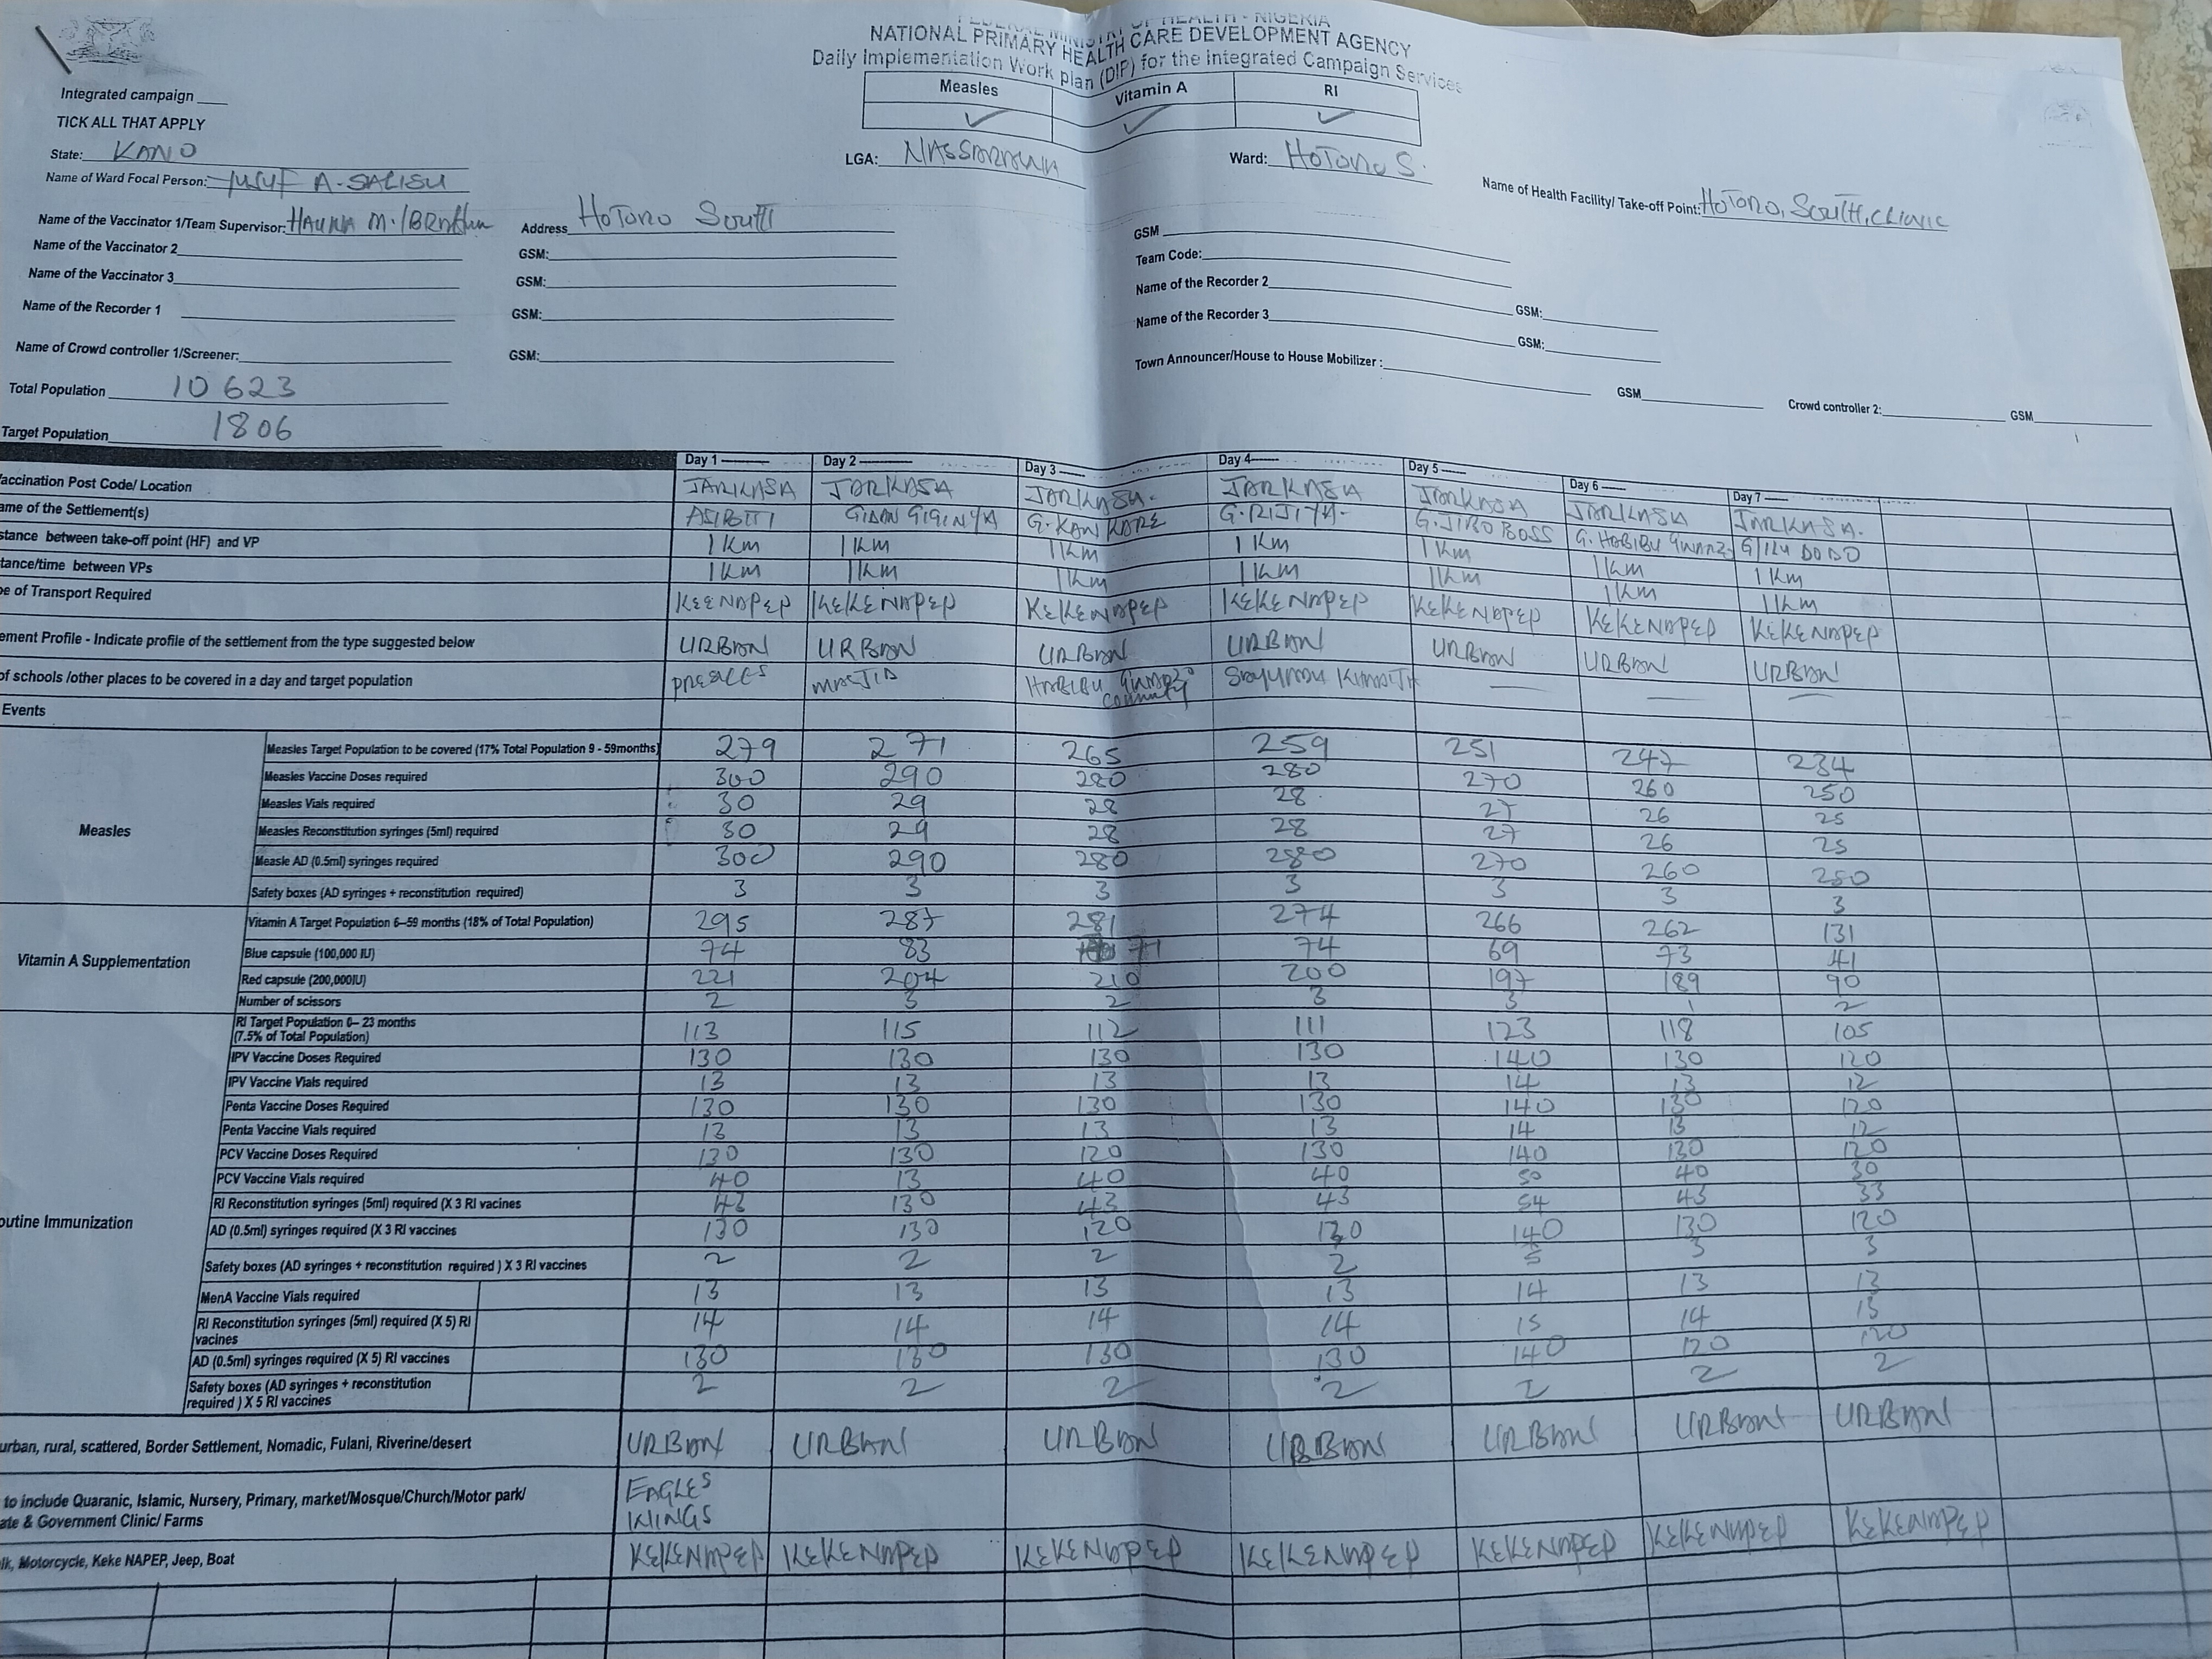 FEDERAL MINISTRY OF HEALTH - NIGERIA
NATIONAL PRIMARY HEALTH CARE DEVELOPMENT AGENCY
Daily Implementation Work plan (DIP) for the Integrated Campaign Services
Integrated campaign ____
TICK ALL THAT APPLY
Measles Vitamin A RI
✓ ✓ ✓
State: KANO LGA: NASSARAWA Ward: HOTORO S.
Name of Ward Focal Person: A. SALISU Name of Health Facility/ Take-off Point: HOTORO, SOUTH, CLINIC
Name of the Vaccinator 1/Team Supervisor: HAUWA M. IBRAHIM Address HOTORO SOUTH GSM
Name of the Vaccinator 2 GSM: Team Code:
Name of the Vaccinator 3 GSM: Name of the Recorder 2 GSM:
Name of the Recorder 1 GSM: Name of the Recorder 3 GSM:
Name of Crowd controller 1/Screener: GSM: Town Announcer/House to House Mobilizer : GSM Crowd controller 2: GSM
Total Population 10623
Target Population 1806
Day 1 Day 2 Day 3 Day 4 Day 5 Day 6 Day 7
accination Post Code/ Location JARKASA JARKASA JARKASA. JARKASA JARKASA JARKASA JARKASA.
ame of the Settlement(s) GIDAN GIGINYA G. KAN KARE G. RIJIYA. G. JIBO BOSS G. HABIBU GWARZ G/ILU DODO
stance between take-off point (HF) and VP 1Km 1Km 1Km 1Km 1Km 1Km 1Km
tance/time between VPs 1Km 1Km 1Km 1Km 1Km 1Km 1Km
e of Transport Required KEENAPEP KEKENAPEP KEKENAPEP KEKENAPEP KEKENAPEP KEKENAPEP KEKENAPEP
ement Profile - Indicate profile of the settlement from the type suggested below URBAN URBAN URBAN URBAN URBAN URBAN URBAN
of schools /other places to be covered in a day and target population MASJID HABIBU GWARZO
Events
Measles
Measles Target Population to be covered (17% Total Population 9 - 59months) 279 271 265 259 251 247 234
Measles Vaccine Doses required 300 290 280 280 270 260 250
Measles Vials required 30 29 28 28 27 26 25
Measles Reconstitution syringes (5ml) required 30 29 28 28 27 26 25
Measle AD (0.5ml) syringes required 300 290 280 280 270 260 250
Safety boxes (AD syringes + reconstitution required) 3 3 3 3 3 3 3
Vitamin A Supplementation
Vitamin A Target Population 6–59 months (18% of Total Population) 295 287 281 274 266 262 131
Blue capsule (100,000 IU) 74 83 71 74 69 73 41
Red capsule (200,000IU) 221 204 210 200 197 189 90
Number of scissors 2 3 2 3 3 1 2
outine Immunization
RI Target Population 0– 23 months
(7.5% of Total Population) 113 115 112 111 123 118 105
IPV Vaccine Doses Required 130 130 130 130 140 130 120
IPV Vaccine Vials required 13 13 13 13 14 13 12
Penta Vaccine Doses Required 130 130 130 130 140 130 120
Penta Vaccine Vials required 13 13 13 13 14 13 12
PCV Vaccine Doses Required 130 130 120 130 140 130 120
PCV Vaccine Vials required 40 13 40 40 50 40 30
RI Reconstitution syringes (5ml) required (X 3 RI vacines 43 130 43 43 54 43 33
AD (0.5ml) syringes required (X 3 RI vaccines 130 130 120 130 140 130 120
Safety boxes (AD syringes + reconstitution required ) X 3 RI vaccines 2 2 2 2 3 3
MenA Vaccine Vials required 13 13 13 13 14 13 13
RI Reconstitution syringes (5ml) required (X 5) RI
vacines 14 14 14 14 15 14 13
AD (0.5ml) syringes required (X 5) RI vaccines 130 130 130 130 140 120 120
Safety boxes (AD syringes + reconstitution
required ) X 5 RI vaccines 2 2 2 2 2 2 2
urban, rural, scattered, Border Settlement, Nomadic, Fulani, Riverine/desert URBAN URBAN URBAN URBAN URBAN URBAN URBAN
to include Quaranic, Islamic, Nursery, Primary, market/Mosque/Church/Motor park/ EAGLES
ate & Government Clinic/ Farms KINGS
lk, Motorcycle, Keke NAPEP, Jeep, Boat KEKENAPEP KEKENAPEP KEKENAPEP KEKENAPEP KEKENAPEP KEKENAPEP KEKENAPEP